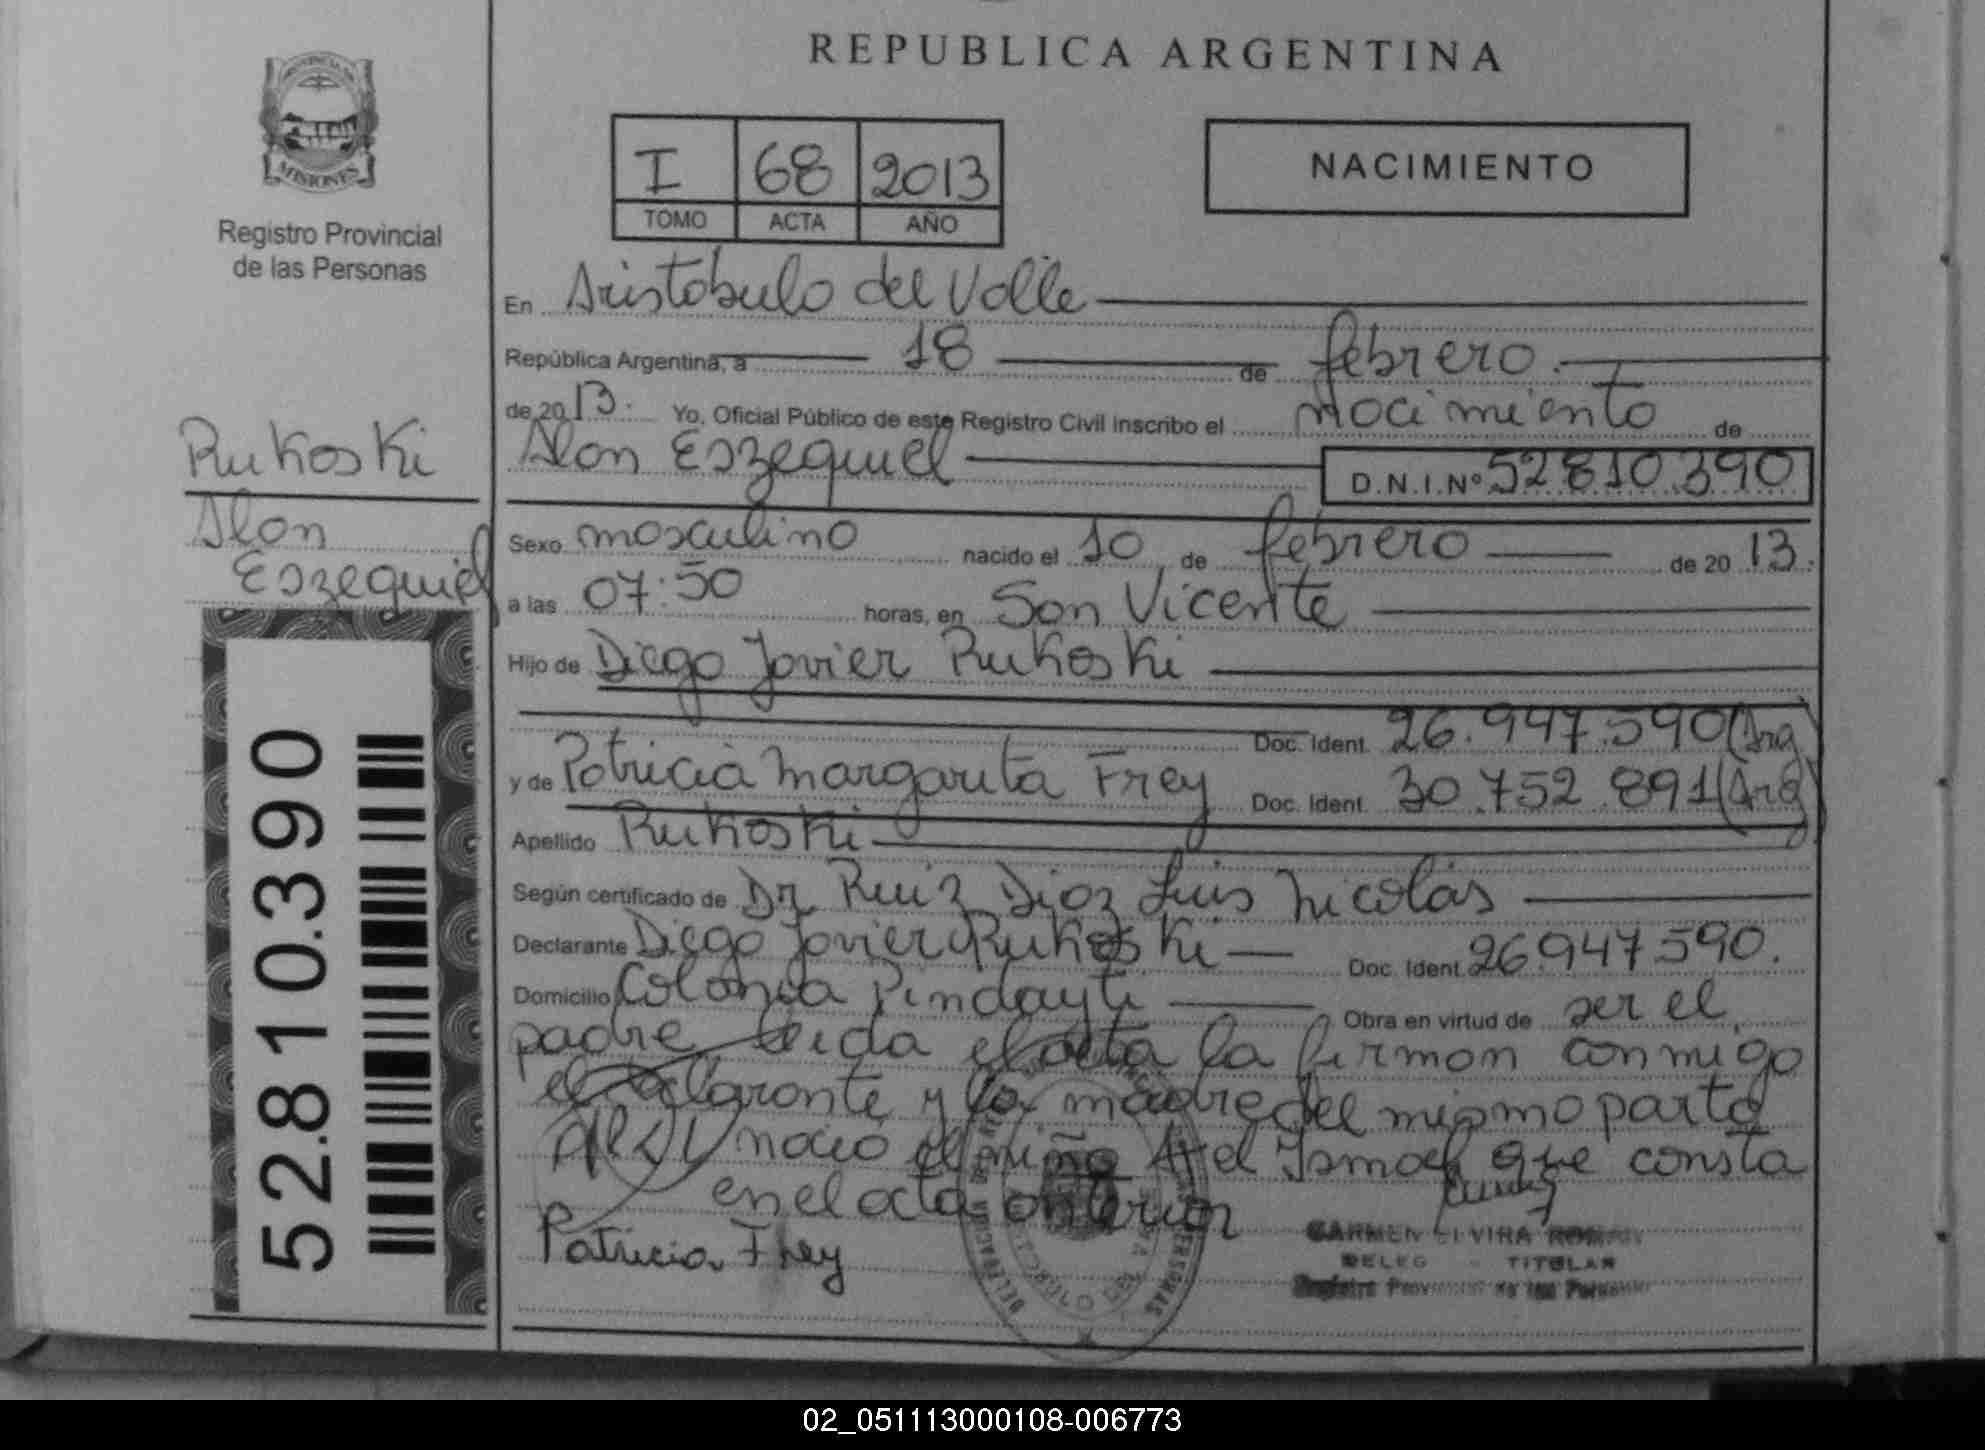 REPUBLICA ARGENTINA
PROVINCIA DE
MISIONES
Registro Provincial
de las Personas
I 68 2013
TOMO ACTA AÑO
NACIMIENTO
En Aristobulo del Valle
República Argentina, a 18 de febrero.
de 2013. Yo, Oficial Público de este Registro Civil inscribo el nacimiento de
Alan Eszequiel D.N.I.Nº 52810.390
Rukoski
Alan
Eszequiel
Sexo masculino nacido el 10 de febrero de 20 13.
a las 07:50 horas, en San Vicente
Hijo de Diego Javier Rukoski
Doc. Ident. 26.947.590(Arg)
y de Patricia Margarita Frey Doc. Ident. 30.752.891(Arg)
Apellido Rukoski
Según certificado de Dr Ruiz Diaz Luis Nicolás
Declarante Diego Javier Rukoski Doc. Ident. 26947590.
Domicilio Colonia Pindayti Obra en virtud de ser el
padre leida el acta la firman conmigo
el declarante y la madre del mismo parto
nació el niño Axel Ismael que consta
en el acta anterior
Patricia Frey
CARMEN ELVIRA ROMAN
DELEG TITULAR
Registro Provincial de las Personas
52.810.390
02_051113000108-006773